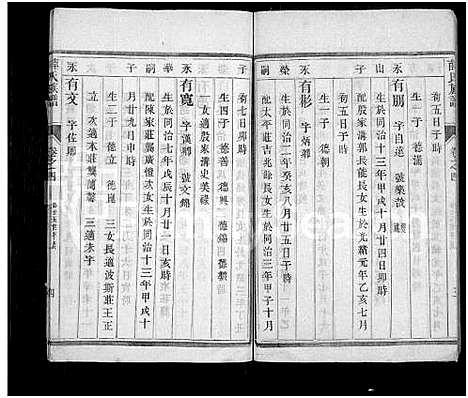 初五日子時
生一子 德漢
永有朋 字自遠 號樂
山 生於同治十三年十一月廿四日卯時
配殷家溝郭長能長女生於光緒元年乙亥七月
初五日子時
永有彬 字炳卿
榮 生於同治二年癸亥八月廿五日子時
嗣 配太原莊吉兆餘長女生於同治十三年甲子十月
子 初七日子時
生四子 德善 德興 德錫
一女適殷家溝史美祿
永有寬 字漢卿 號文錦
華 生於同治七年戊辰十月廿一日亥時
嗣 配陳家莊龔廣澄次女生於同治十三年甲戌十
子 月廿九日申時
生二子 德立 德崑
三女長適波斯莊王正
立 次適本莊龔蘭馨 三適未字
永有文 字佐卿
卷之四
四